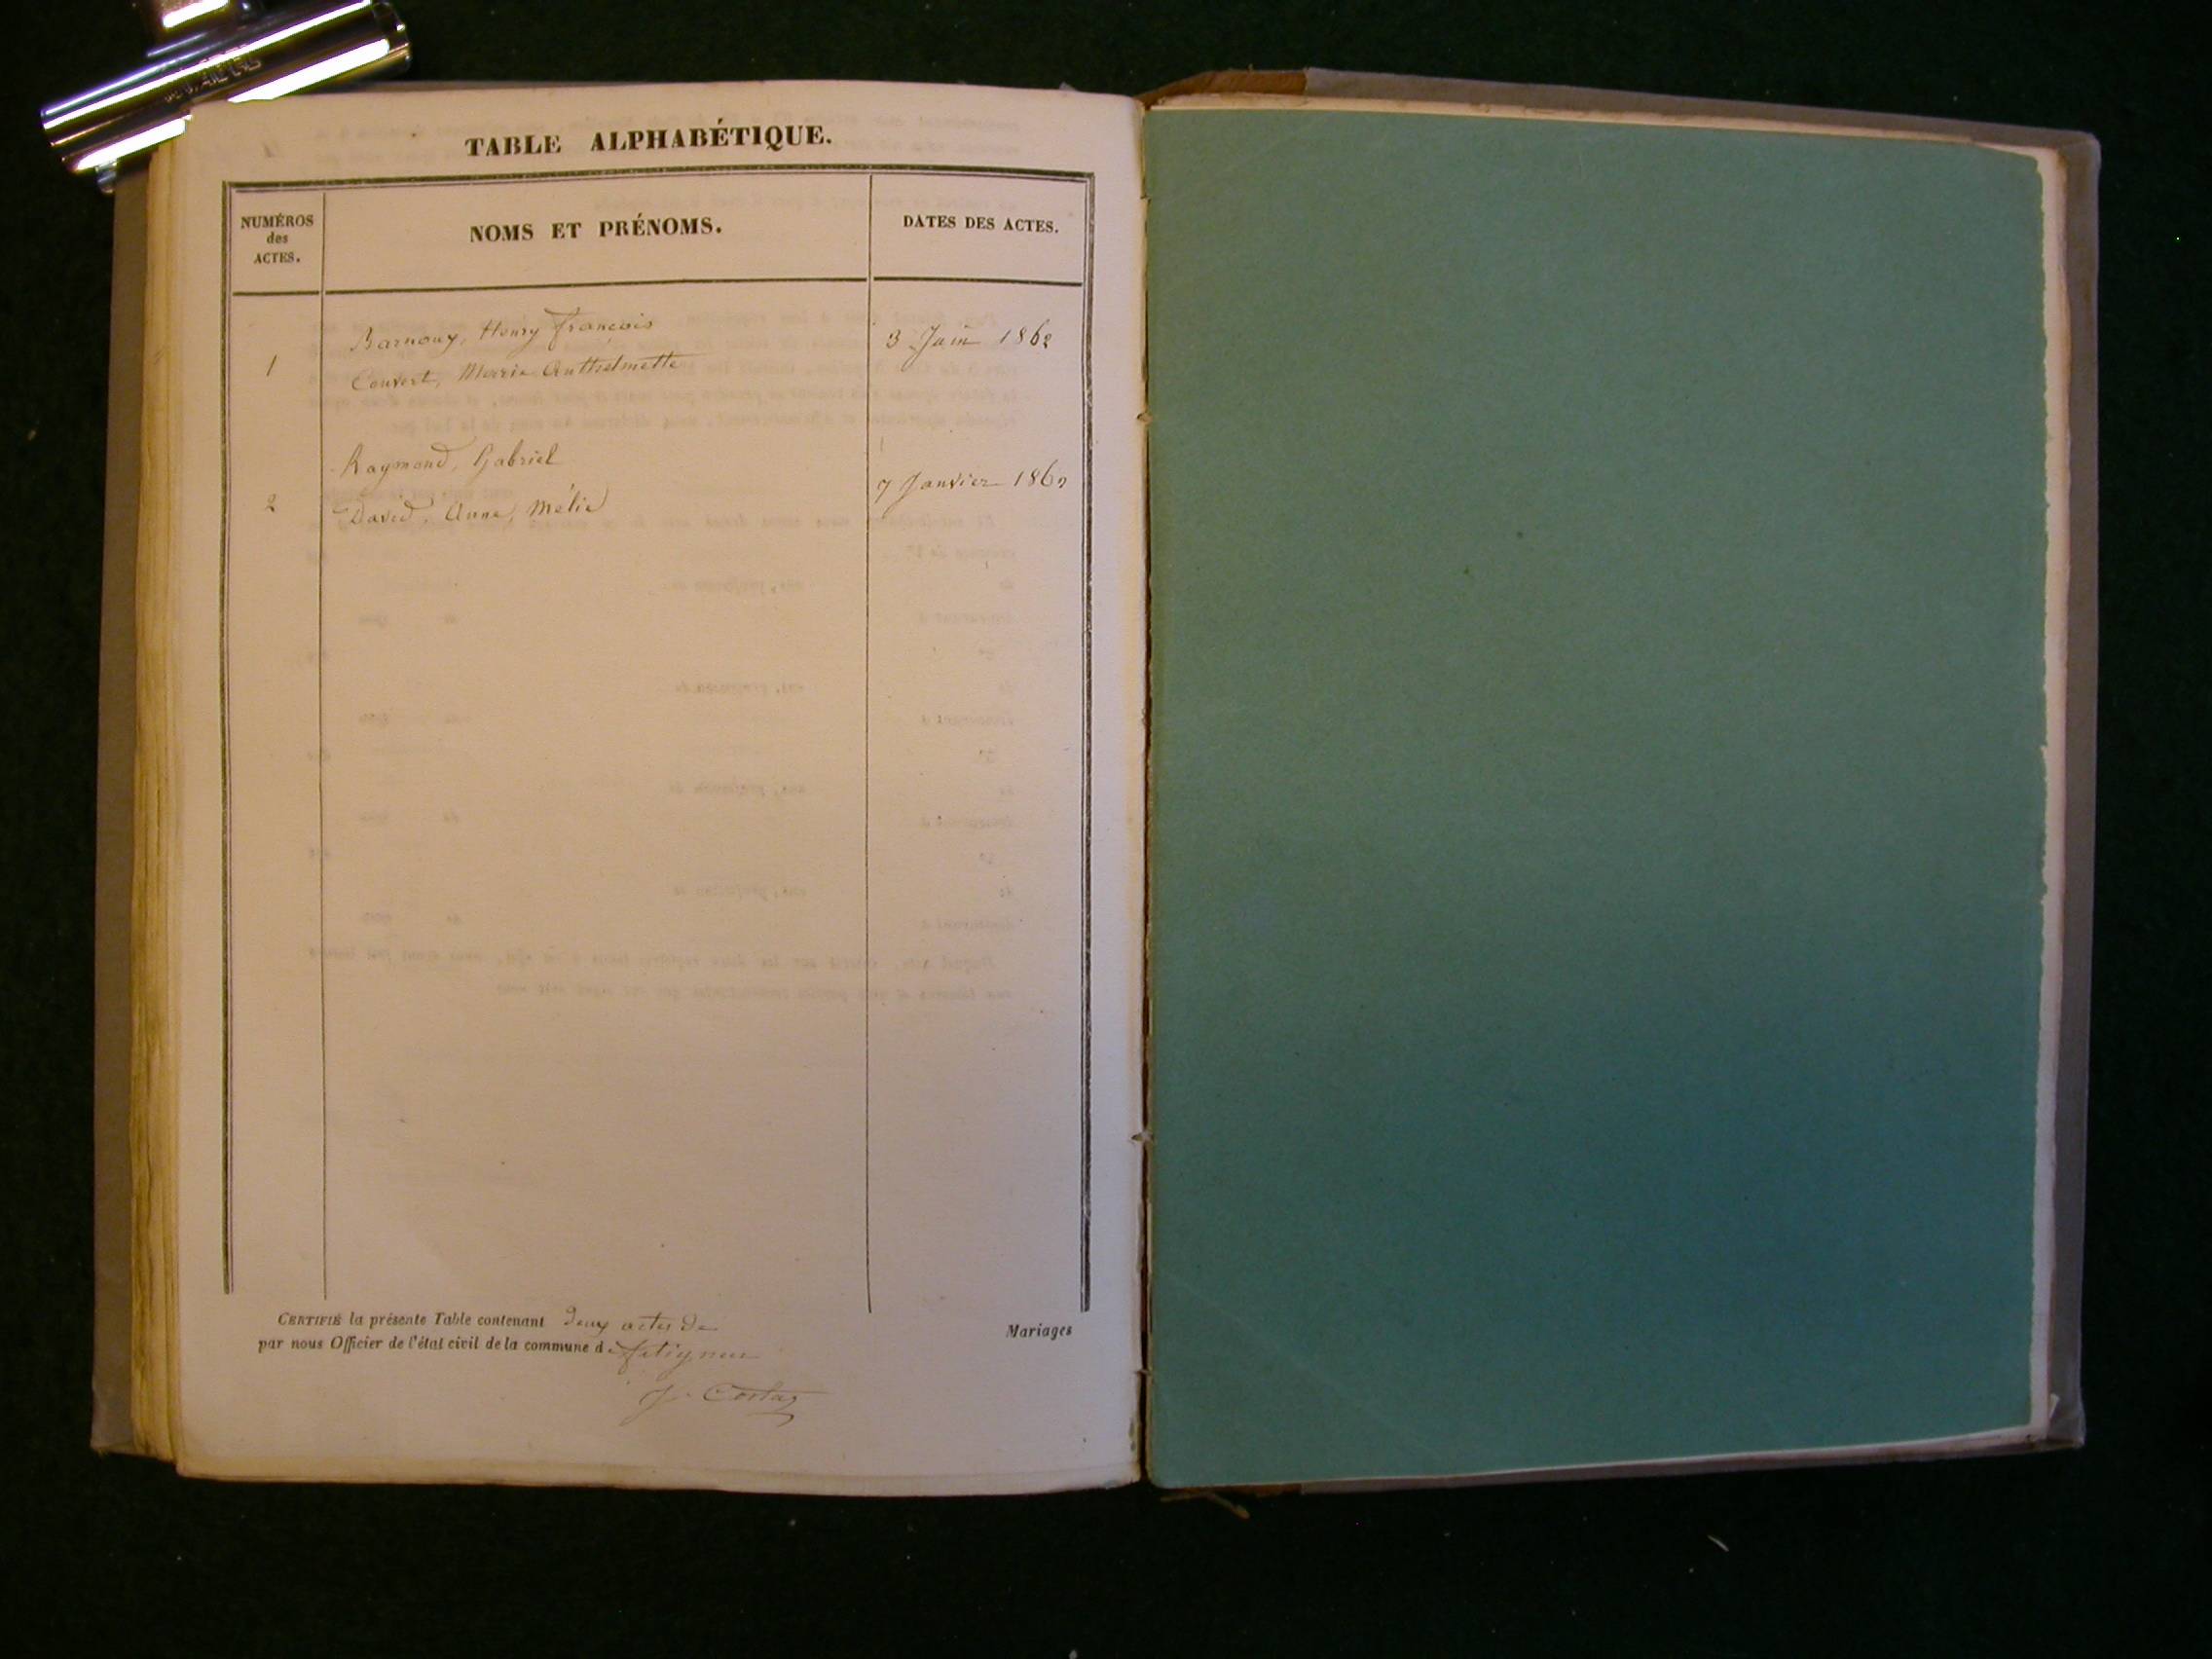 TABLE ALPHABÉTIQUE.
NUMÉROS
des
ACTES.
NOMS ET PRÉNOMS.
DATES DES ACTES.
Barnoux, Henry François
1
Convert, Marie Anthelmette
3 Juin 1862
Raymond, Gabriel
2
David, Anne, Mélie
7 Janvier 1862
CERTIFIÉ la présente Table contenant deux actes de Mariages
par nous Officier de l'état civil de la commune de
J. Costaz